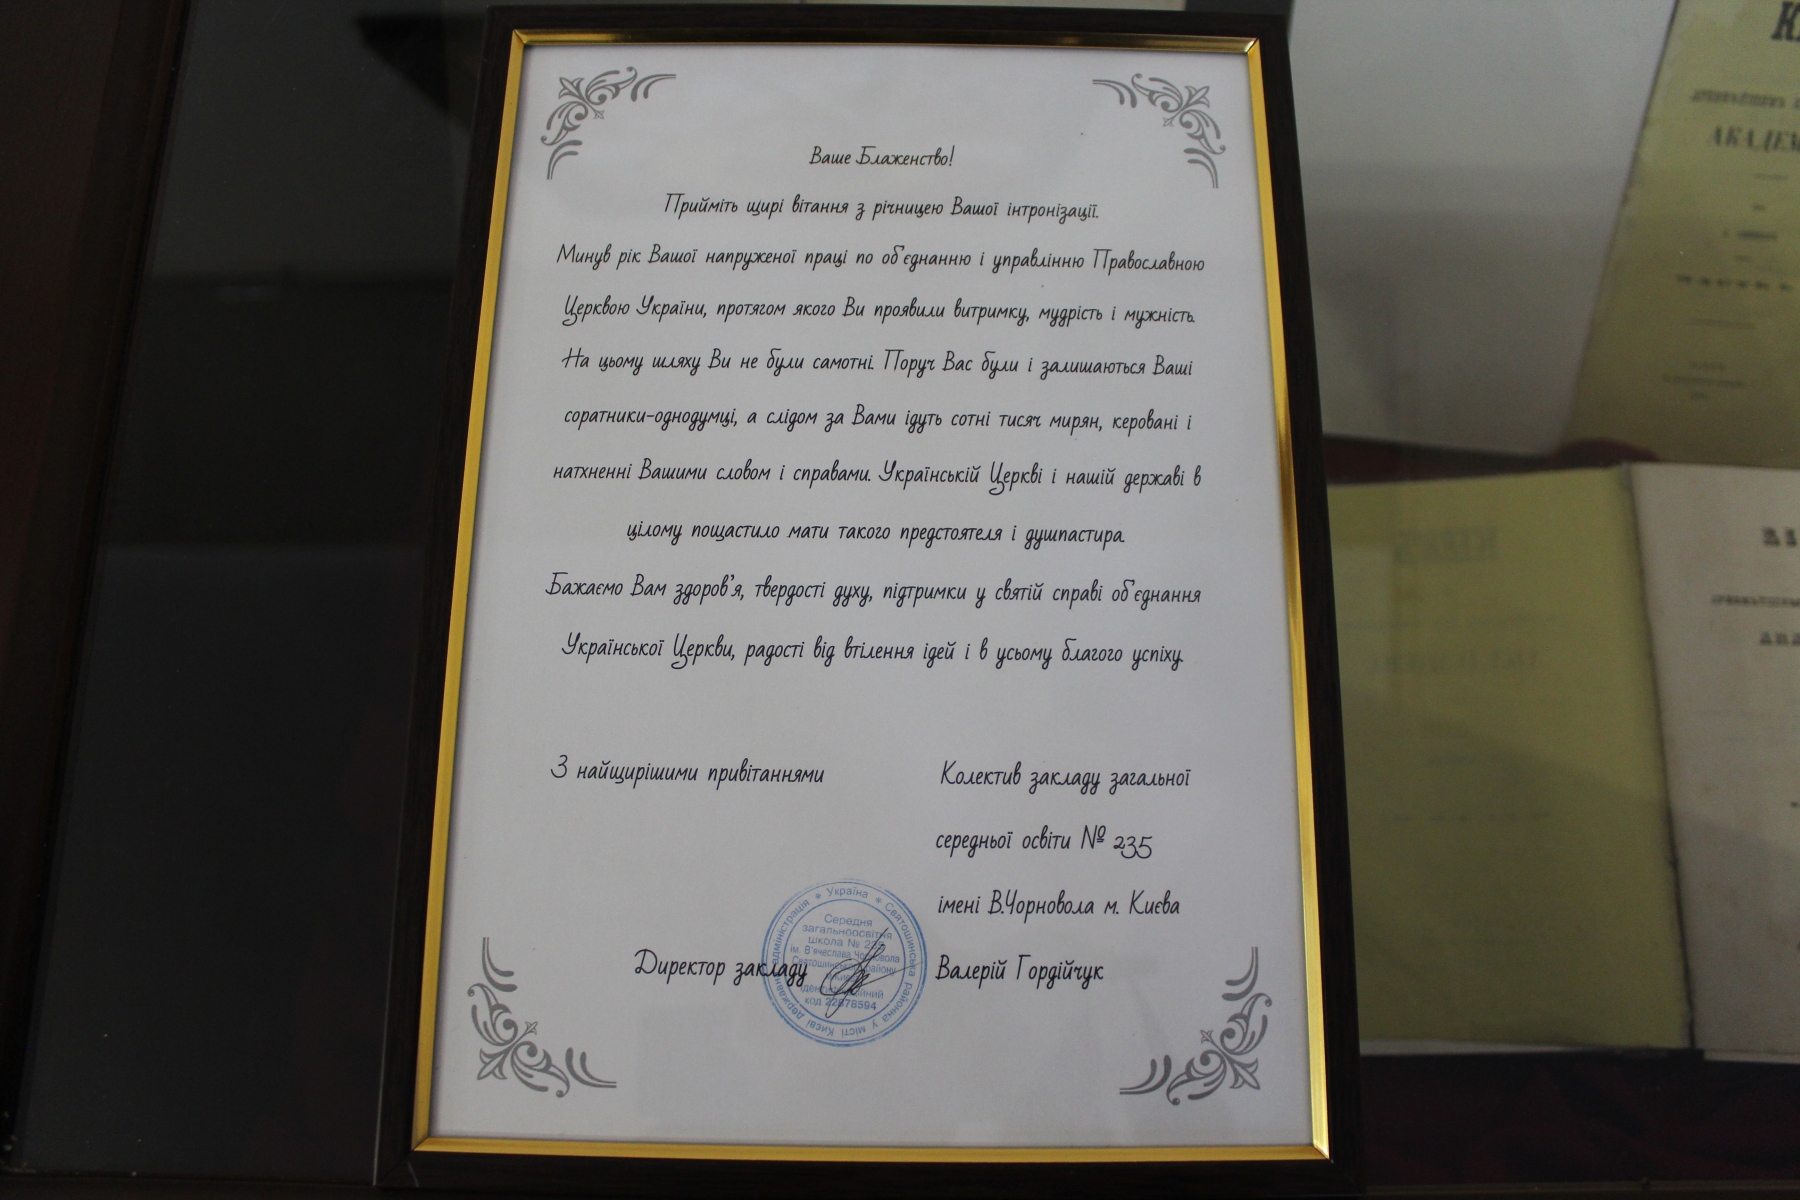 Ваше Блаженство!
Прийміть щирі вітання з річницею Вашої інтронізації.
Минув рік Вашої напруженої праці по об'єднанню і управлінню Православною
Церквою України, протягом якого Ви проявили витримку, мудрість і мужність.
На цьому шляху Ви не були самотні. Поруч Вас були і залишаються Ваші
соратники-однодумці, а слідом за Вами ідуть сотні тисяч мирян, керовані і
натхненні Вашими словом і справами. Українській Церкві і нашій державі в
цілому пощастило мати такого предстоятеля і душпастира.
Бажаємо Вам здоров'я, твердості духу, підтримки у святій справі об'єднання
Української Церкви, радості від втілення ідей і в усьому благого успіху.
З найщирішими привітаннями
Колектив закладу загальної
середньої освіти № 235
імені В.Чорновола м. Києва
Директор закладу
Валерій Гордійчук
Україна * Святошинська районна у місті Києві державна адміністрація *
Середня
загальноосвітня
школа № 235
ім. В'ячеслава Чорновола
Святошинського району
ідентифікаційний
код 22878594
АКАДЕМ